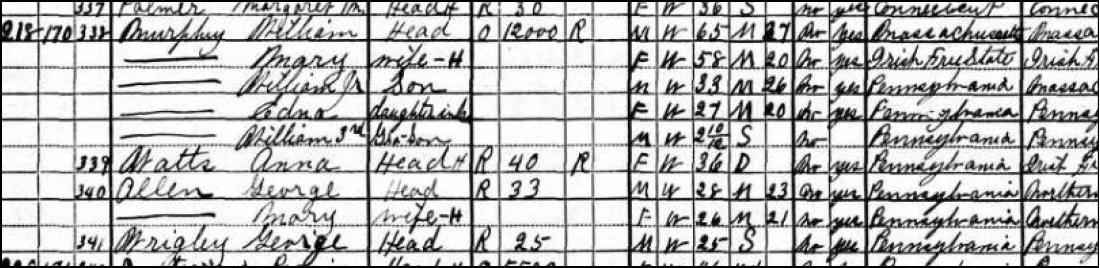 337 Palmer Margaret M. Head H R 30 F W 36 S no yes Connecticut Connec
218 170 338 Murphy William Head O 12000 R M W 65 M 27 no yes Massachusetts Massa
Mary wife-H F W 58 M 20 no yes Irish Free State Irish F
William Jr Son M W 33 M 26 no yes Pennsylvania Massac
Edna F W 27 M 20 no yes Pennsylvania Pennsy
William 3rd M W 2 10/12 S no Pennsylvania Pennsy
339 Watts Anna Head H R 40 R F W 36 D no yes Pennsylvania
340 Allen George Head R 33 M W 28 M 23 no yes Pennsylvania Northern
Mary wife-H F W 26 M 21 no yes Pennsylvania Northern
341 Wrigley George Head R 25 M W 25 S no yes Pennsylvania Pennsy